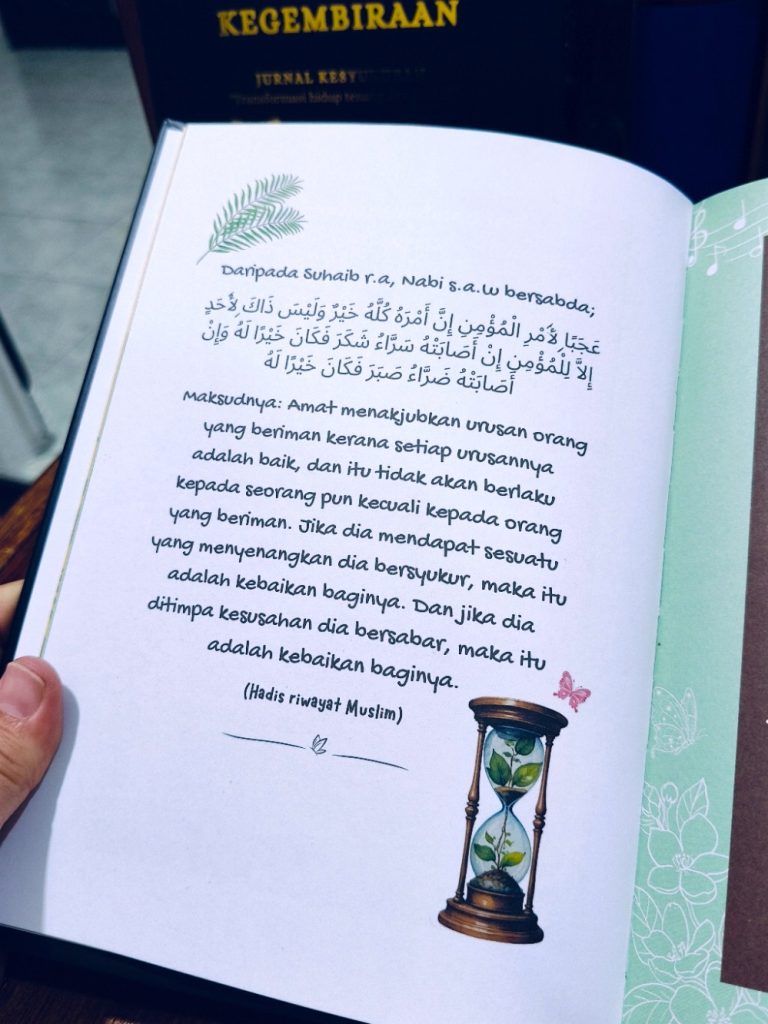 KEGEMBIRAAN
JURNAL KESYUKURAN
"Transformasi hidup
Daripada Suhaib r.a, Nabi s.a.w bersabda;
عَجَبًا لِأَمْرِ الْمُؤْمِنِ إِنَّ أَمْرَهُ كُلَّهُ خَيْرٌ وَلَيْسَ ذَاكَ لِأَحَدٍ
إِلاَّ لِلْمُؤْمِنِ إِنْ أَصَابَتْهُ سَرَّاءُ شَكَرَ فَكَانَ خَيْرًا لَهُ وَإِنْ
أَصَابَتْهُ ضَرَّاءُ صَبَرَ فَكَانَ خَيْرًا لَهُ
Maksudnya: Amat menakjubkan urusan orang
yang beriman kerana setiap urusannya
adalah baik, dan itu tidak akan berlaku
kepada seorang pun kecuali kepada orang
yang beriman. Jika dia mendapat sesuatu
yang menyenangkan dia bersyukur, maka itu
adalah kebaikan baginya. Dan jika dia
ditimpa kesusahan dia bersabar, maka itu
adalah kebaikan baginya.
(Hadis riwayat Muslim)